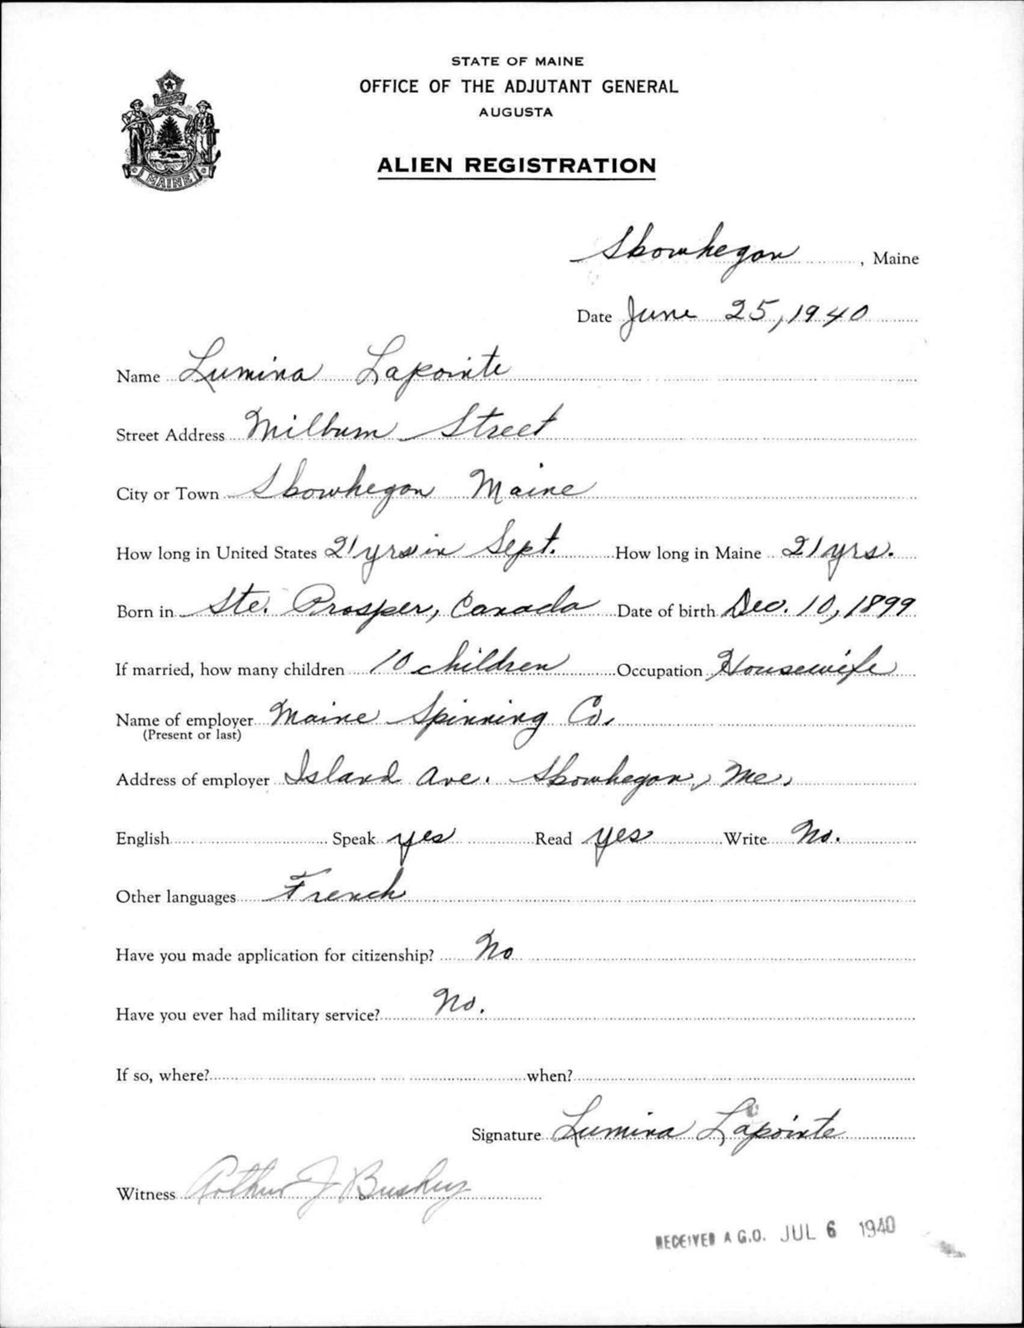 STATE OF MAINE
OFFICE OF THE ADJUTANT GENERAL
AUGUSTA
ALIEN REGISTRATION
MAINE
Skowhegan, Maine
Date June 25, 1940
Name Lumina Lapointe
Street Address Milburn Street
City or Town Skowhegan Maine
How long in United States 21 yrs in Sept. How long in Maine 21 yrs.
Born in Ste. Prosper, Canada Date of birth Dec. 10, 1899
If married, how many children 10 children Occupation Housewife
Name of employer Maine Spinning Co.
(Present or last)
Address of employer Island Ave. Skowhegan, Me.
English Speak yes Read yes Write No.
Other languages French
Have you made application for citizenship? No
Have you ever had military service? No.
If so, where? when?
Signature Lumina Lapointe
Witness Arthur J Bushey
RECEIVED A.G.O. JUL 6 1940